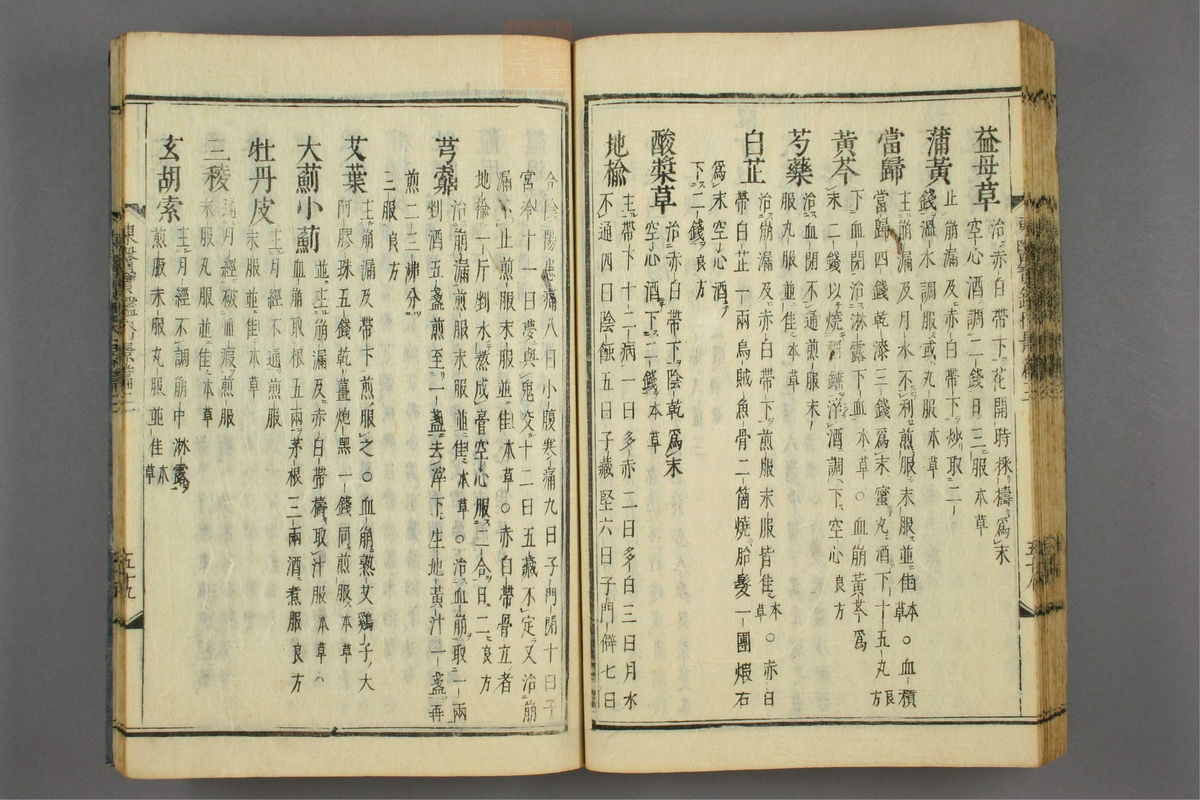 益母草 治赤白帶下花開時採擣爲末
空心酒調二錢日三服本草
蒲黃 止崩漏及赤白帶下炒取二
錢溫水調服或丸服本草
當歸 主崩漏及月水不利煎服末服並佳本草○血積
當歸四錢乾漆三錢爲末蜜丸酒下十五丸良方
黃芩 下血閉治淋露下血本草○血崩黃芩爲
末二錢以燒秤錘淬酒調下空心良方
芍藥 治血閉不通煎服末
服丸服並佳本草
白芷 治崩漏及赤白帶下煎服末服皆佳本草○赤白
帶白芷一兩烏賊魚骨二箇燒胎髮一團煆右
爲末空心酒
下二錢良方
酸漿草 治赤白帶下陰乾爲末
空心酒下二錢本草
地楡 主帶下十二病一日多赤二日多白三日月水
不通四日陰蝕五日子藏堅六日子門僻七日
合陰陽患痛八日小腹寒痛九日子門閉十日子
宮冷十一日夢與鬼交十二日五藏不定又治崩
漏不止煎服末服並佳本草○赤白帶骨立者
地楡一斤剉水熬成膏空心服二合日二良方
芎藭 治崩漏煎服末服並佳本草○治血崩取一兩
剉酒五盞煎至一盞去滓下生地黃汁一盞再
煎二三沸分
三服良方
艾葉 主崩漏及帶下煎服之○血崩熟艾鷄子大
阿膠珠五錢乾薑炮黑一錢同煎服本草
大薊小薊 並主崩漏及赤白帶擣取汁服本草○
血崩取根五兩茅根三兩酒煮服良方
牡丹皮 主月經不通煎服
末服並佳本草
三稜 通月經破血瘕煎服
末服丸服並佳本草
玄胡索 主月經不調崩中淋露
煎服末服丸服並佳本草
東醫寶鑑內景篇三
五十八
東醫寶鑑內景篇三
五十九